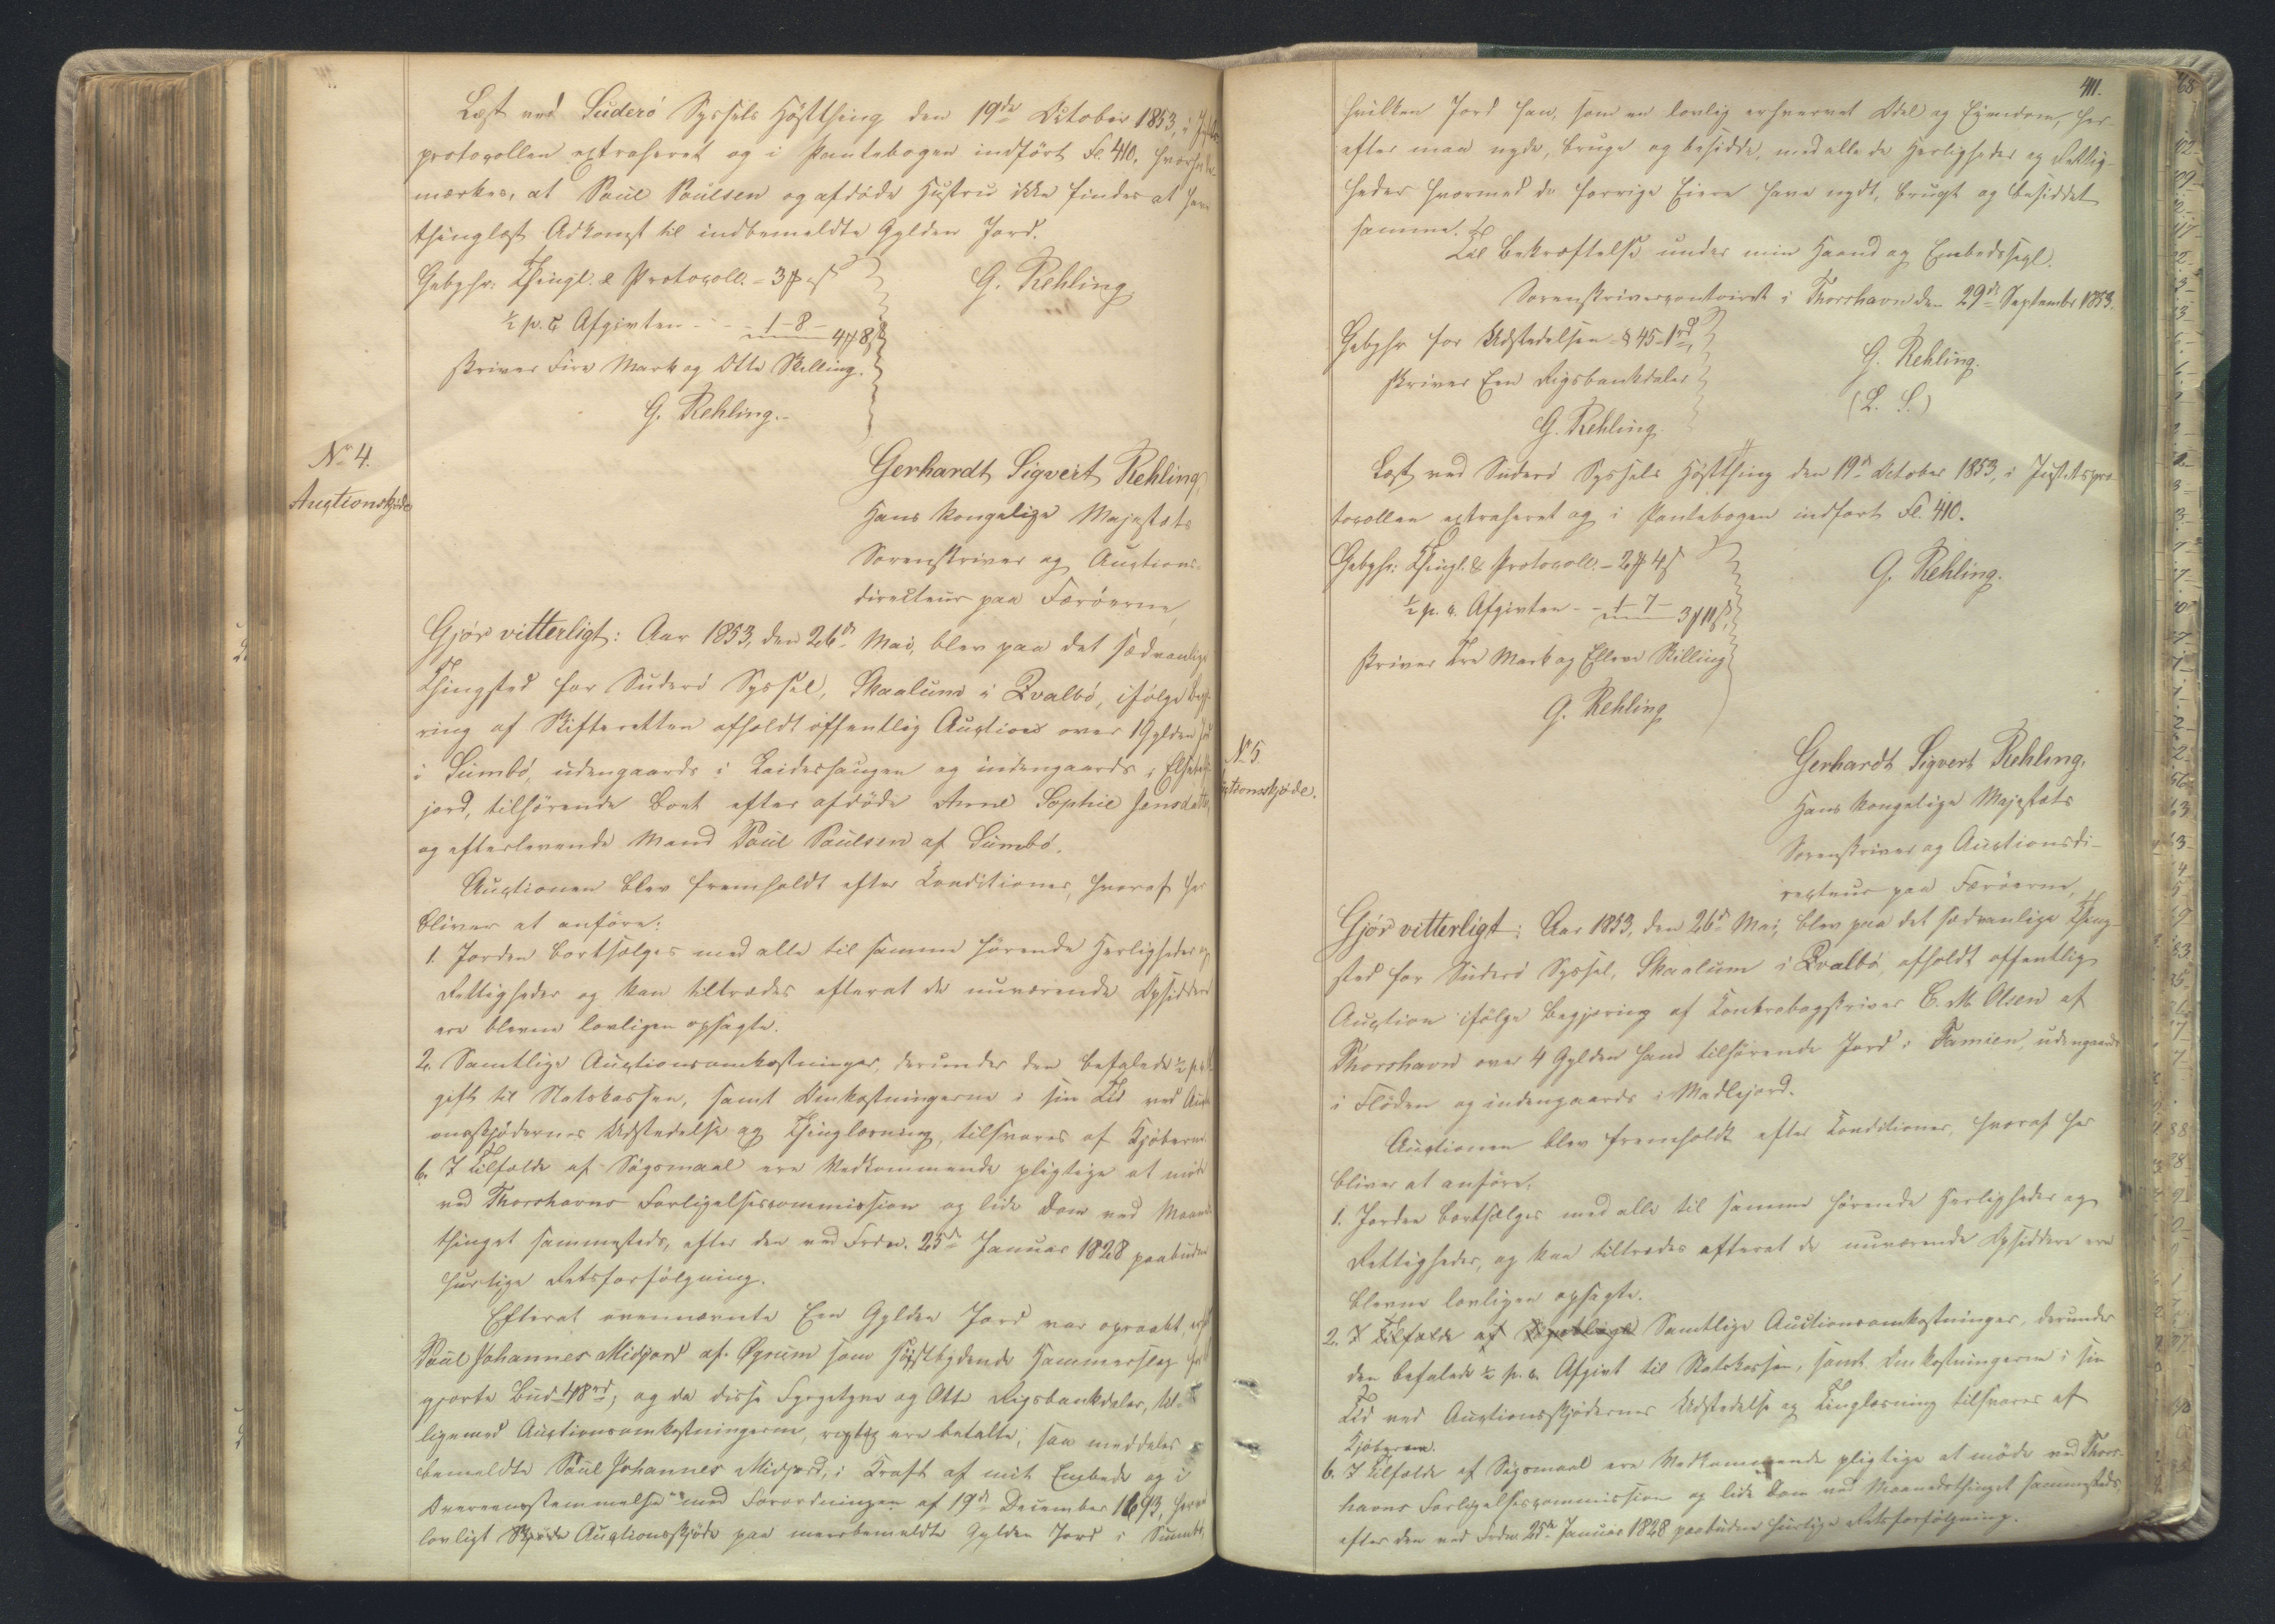 Læst ved Suderø Syssels Høstthing den 19de October 1853, i
protocollen extraheret og i Pantebogen indført Fl. 410, hvorhos be-
mærkes, at Poul Poulsen og afdøde Hustru ikke findes at have
thinglæst Adkomst til indbemeldte Gylden Jord.
Gebyhr: Thingl. & Protocoll. - 3 -
G. Rehling
½ p. C. Afgivten - - - 1 - 8 -
4 8
skriver Fire Mark og Otte Skilling.
G. Rehling.-
No. 4.
Auctionsskjøde
Gerhardt Sigvert Rehling,
Hans Kongelige Majestæts
Sorenskriver og Auctions-
directeur paa Færøerne,
Gjør vitterligt: Aar 1853, den 26de Mai, blev paa det sædvanlige
Thingsted for Suderø Syssel, Skaalum i Qvalbø, ifølge Begjæ-
ring af Skifteretten afholdt offentlig Auction over 1 Gylden Jord
i Sumbø, udengaards i Leideshaugen og indengaards i
jord, tilhørende Boet efter afdøde Anne Sophie Jensdatter
og efterlevende Mand Poul Poulsen af Sumbø.
Auctionen blev fremholdt efter Conditioner, hvoraf her
bliver at anføre:
1. Jorden bortsælges med alle til samme hørende Herligheder og
Rettigheder og kan tiltrædes efterat de nuværende Opsiddere
ere blevne lovligen opsagte.
2. Samtlige Auctionsomkostninger, derunder den befalede ½ p. C. Af-
gift til Statskassen, samt Omkostningerne i sin Tid ved Aucti-
onsskjødernes Udstedelse og Thinglæsning, tilsvares af Kjøberne.
6. I Tilfælde af Søgsmaal ere Vedkommende pligtige at møde
ved Thorshavns Forligelsescommission og lide Dom ved Maaneds-
thinget sammesteds, efter den ved Frdn. 25de Januar 1828 paabudne
hurtige Retsforfølgning.
Efterat ovennævnte Een Gylden Jord var opraabt,
Poul Johannes Midjord af Øgrum som Høistbydende Hammerslag for
gjorte Bud 48 rd; og da disse Fyrgetyve og Otte Rigsbankdaler, til-
ligemed Auctionsomkostningerne, rigtig ere betalte, saa meddeles
bemeldte Poul Johannes Midjord, i Kraft af mit Embede og i
Overensstemmelse med Forordningen af 19de December 1693, herved
lovligt Skjøde Auctionsskjøde paa meerbemeldte Gylden Jord i Sumbø,
411.
hvilken Jord han, som en lovlig erhvervet Odel og Eiendom, her-
efter maa nyde, bruge og besidde, med alle de Herligheder og Rettig-
heder hvormed de forrige Eiere have nydt, brugt og besiddet
samme.
Til Bekræftelse under min Haand og Embedssegl.
Sorenskrivercontoiret i Thorshavn den 29de September 1853.
Gebyhr for Udstedelsen § 45 - 1 rd
G. Rehling.
skriver Een Rigsbankdaler
(L. S.)
G. Rehling.
Læst ved Suderø Syssels Høstthing den 19de October 1853, i Justitspro-
tocollen extraheret og i Pantebogen indført Fl. 410.
Gebyhr: Thingl. & Protocoll. - 2 4
G. Rehling.
½ p. c. Afgivten - - 1 - 7 -
3 11
skriver Tre Mark og Elleve Skilling
G. Rehling
No. 5.
ctionsskjøde.
Gerhardt Sigvert Rehling,
Hans Kongelige Majestæts
Sorenskriver og Auctionsdi-
recteur paa Færøerne,
Gjør vitterligt: Aar 1853, den 26de Mai, blev paa det sædvanlige Thing-
sted for Suderø Syssel, Skaalum i Qvalbø, afholdt offentlig
Auction ifølge Begjæring af Contrabogskriver C. M. Olsen af
Thorshavn over 4 Gylden ham tilhørende Jord i Famien, udengaards
i Fløden og indengaards i Madlejord.
Auctionen blev fremholdt efter Conditioner, hvoraf her
bliver at anføre:
1. Jorden bortsælges med alle til samme hørende Herligheder og
Rettigheder, og kan tiltrædes efterat de nuværende Opsiddere ere
blevne lovligen opsagte.
2. I Tilfælde af Samtlige Auctionsomkostninger, derunder
den befalede ½ p. c. Afgivt til Statskassen, samt Omkostningerne i sin
Tid ved Auctionsskjødernes Udstedelse og Tinglæsning tilsvares af
Kjøberne.
6. I Tilfælde af Søgsmaal ere Vedkommende pligtige at møde ved Thors-
havns Forligelsescommission og lide Dom ved Maanedsthinget sammesteds
efter den ved Frdn. 25de Januar 1828 paabudne hurtige Retsforfølgning.